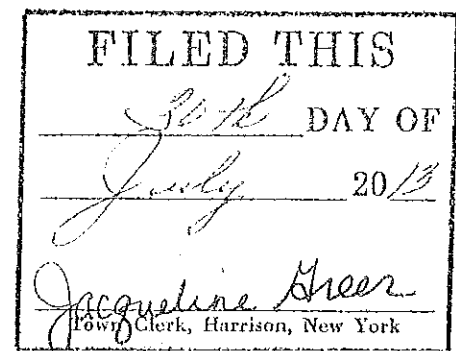 FILED THIS
30th DAY OF
July 2013
Jacqueline Greer
Town Clerk, Harrison, New York